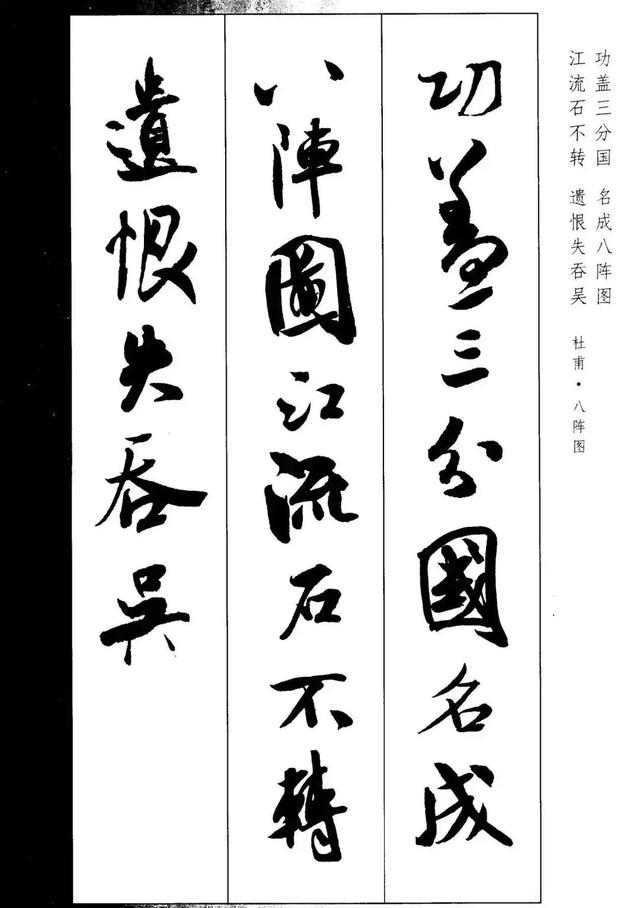 功盖三分国 名成八阵图
江流石不转 遗恨失吞吴
杜甫·八阵图
功盖三分國名成
八陣圖江流石不轉
遺恨失吞吳